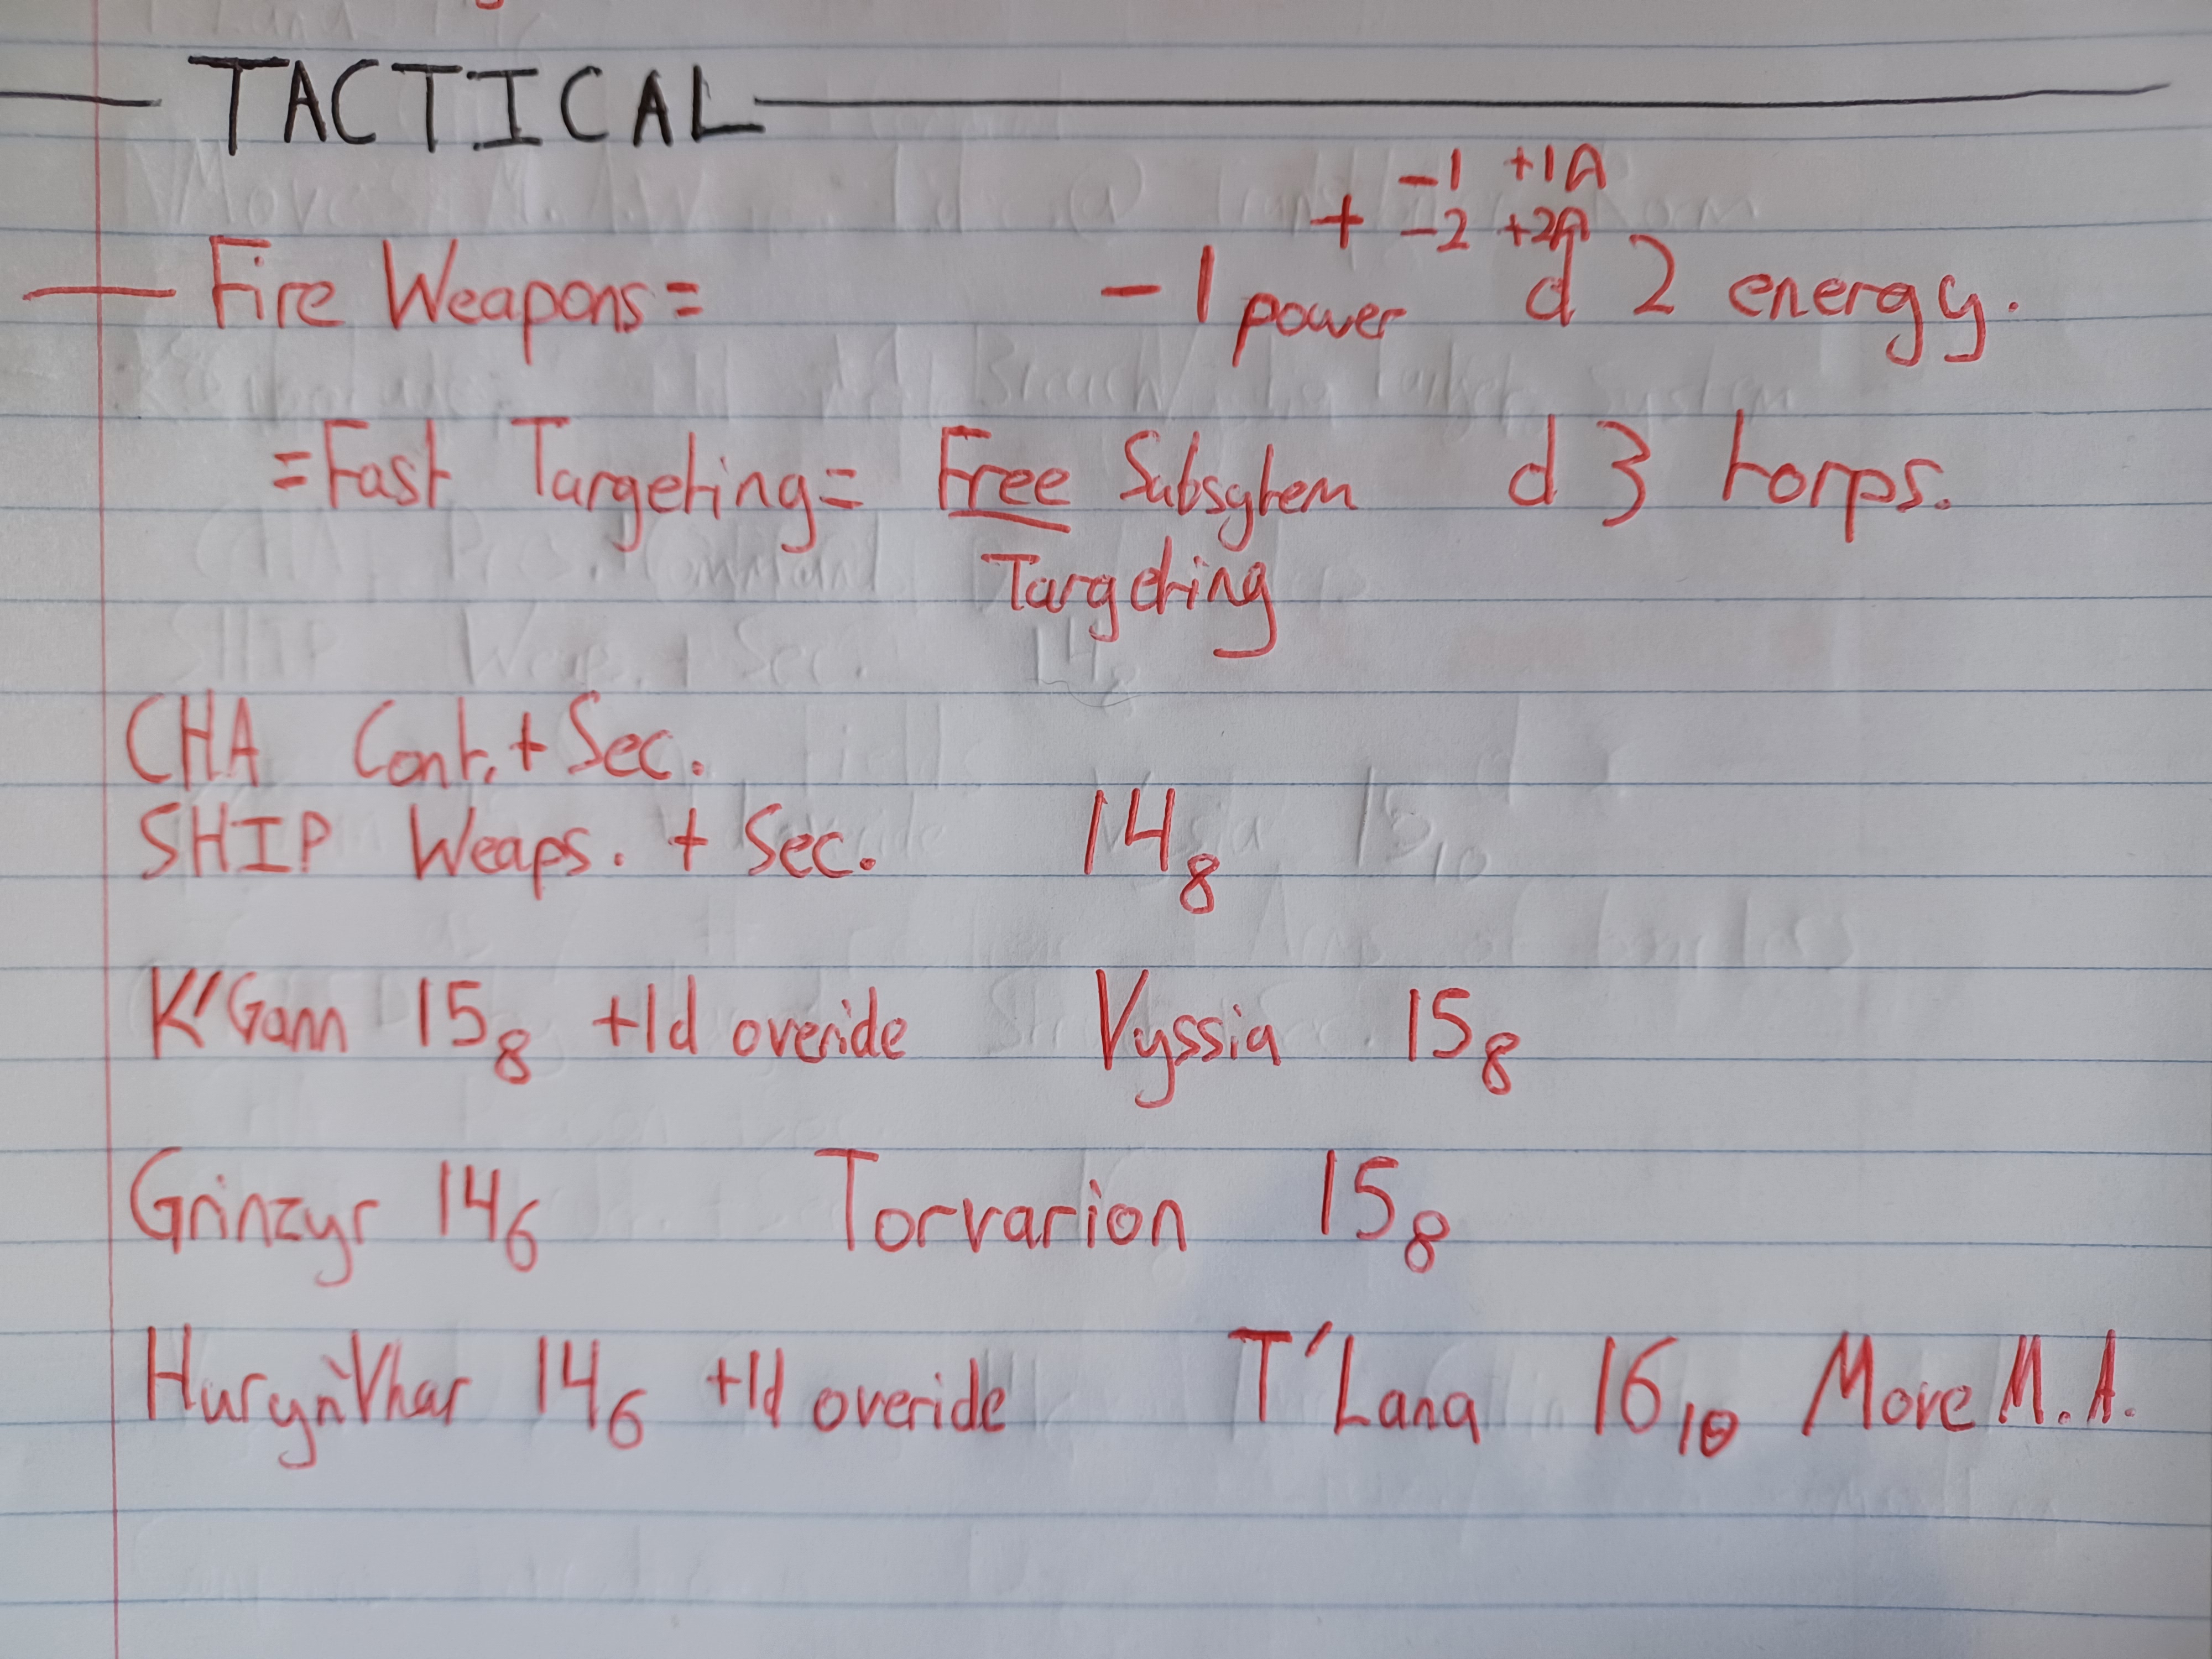 TACTICAL
-1 +1A
+ -2 +2A
Fire Weapons = -1 power d 2 energy.
=Fast Targeting= Free Subsytem d 3 torps.
Targeting
CHA Cont. + Sec.
SHIP Weaps. + Sec. 14 8
K'Gann 15 8 +1d overide Vyssia 15 8
Grinzyr 14 6 Torvarion 15 8
Huryn'Vhar 14 6 +1d overide T'Lana 16 10 Move M.A.